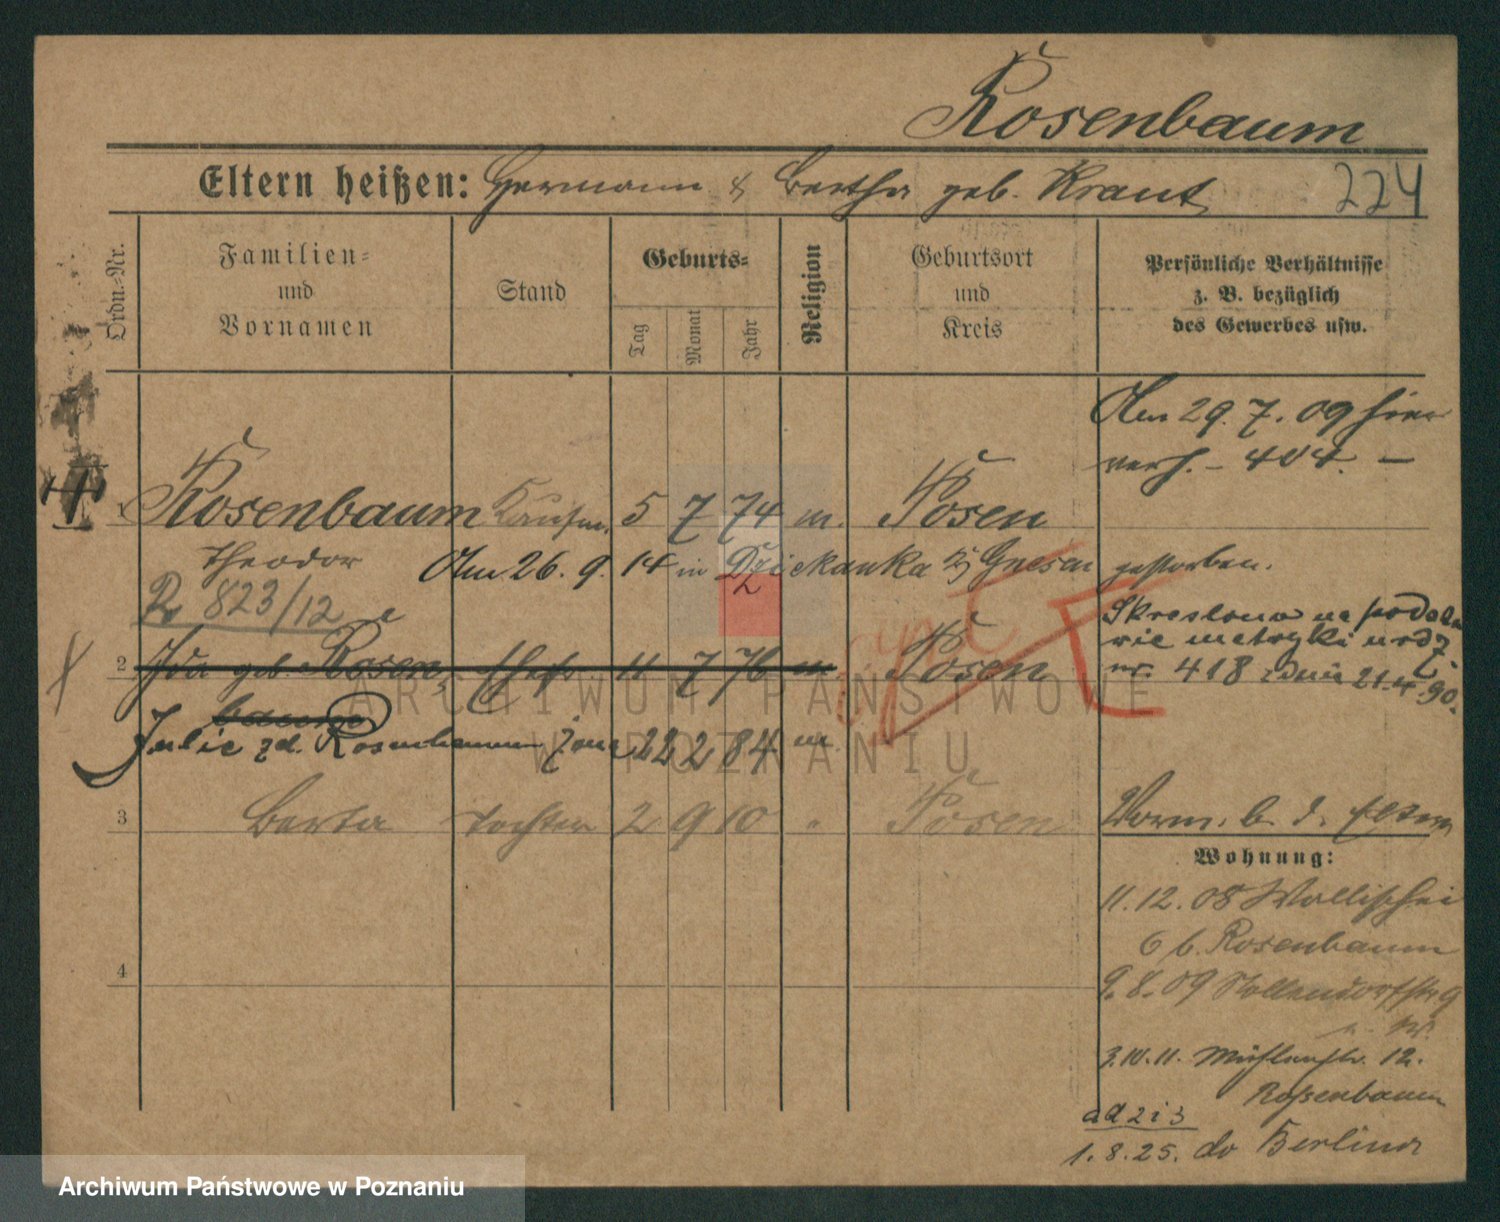 Rosenbaum
Eltern heißen: Hermann & Bertha geb. Kraut
224
Ordn.=Nr.
Familien=
und
Vornamen
Stand
Geburts=
Tag
Monat
Jahr
Religion
Geburtsort
und
Kreis
Persönliche Verhältnisse
z. B. bezüglich
des Gewerbes usw.
Am 29. 7. 09 hier
verh. - 404. -
1 Rosenbaum Kaufm. 5 7 74 m. Posen
Theodor
Am 26. 9. 14 in Dziekanka b/ Gnesen gestorben.
R 823/12
2 Ida geb. Rosen= Ehefr 11 7 76 m. Posen
baum
Skreślono na podsta
wie metryki urodz.
nr. 418 z dnia 21.4.90.
Julie zd. Rosenbaum żona 22 2 84 m.
3 Berta Tochter 2 9 10 " Posen
Vorm. b. d. Eltern
Wohnung:
11. 12. 08 Wallischei
6 b. Rosenbaum
9. 8. 09 Nollendorfstr 9
4
3.10.11. Mühlenstr. 12.
Rosenbaum
ad 2 i 3
1. 8. 25. do Berlina
ARCHIWUM PAŃSTWOWE
W POZNANIU
Archiwum Państwowe w Poznaniu